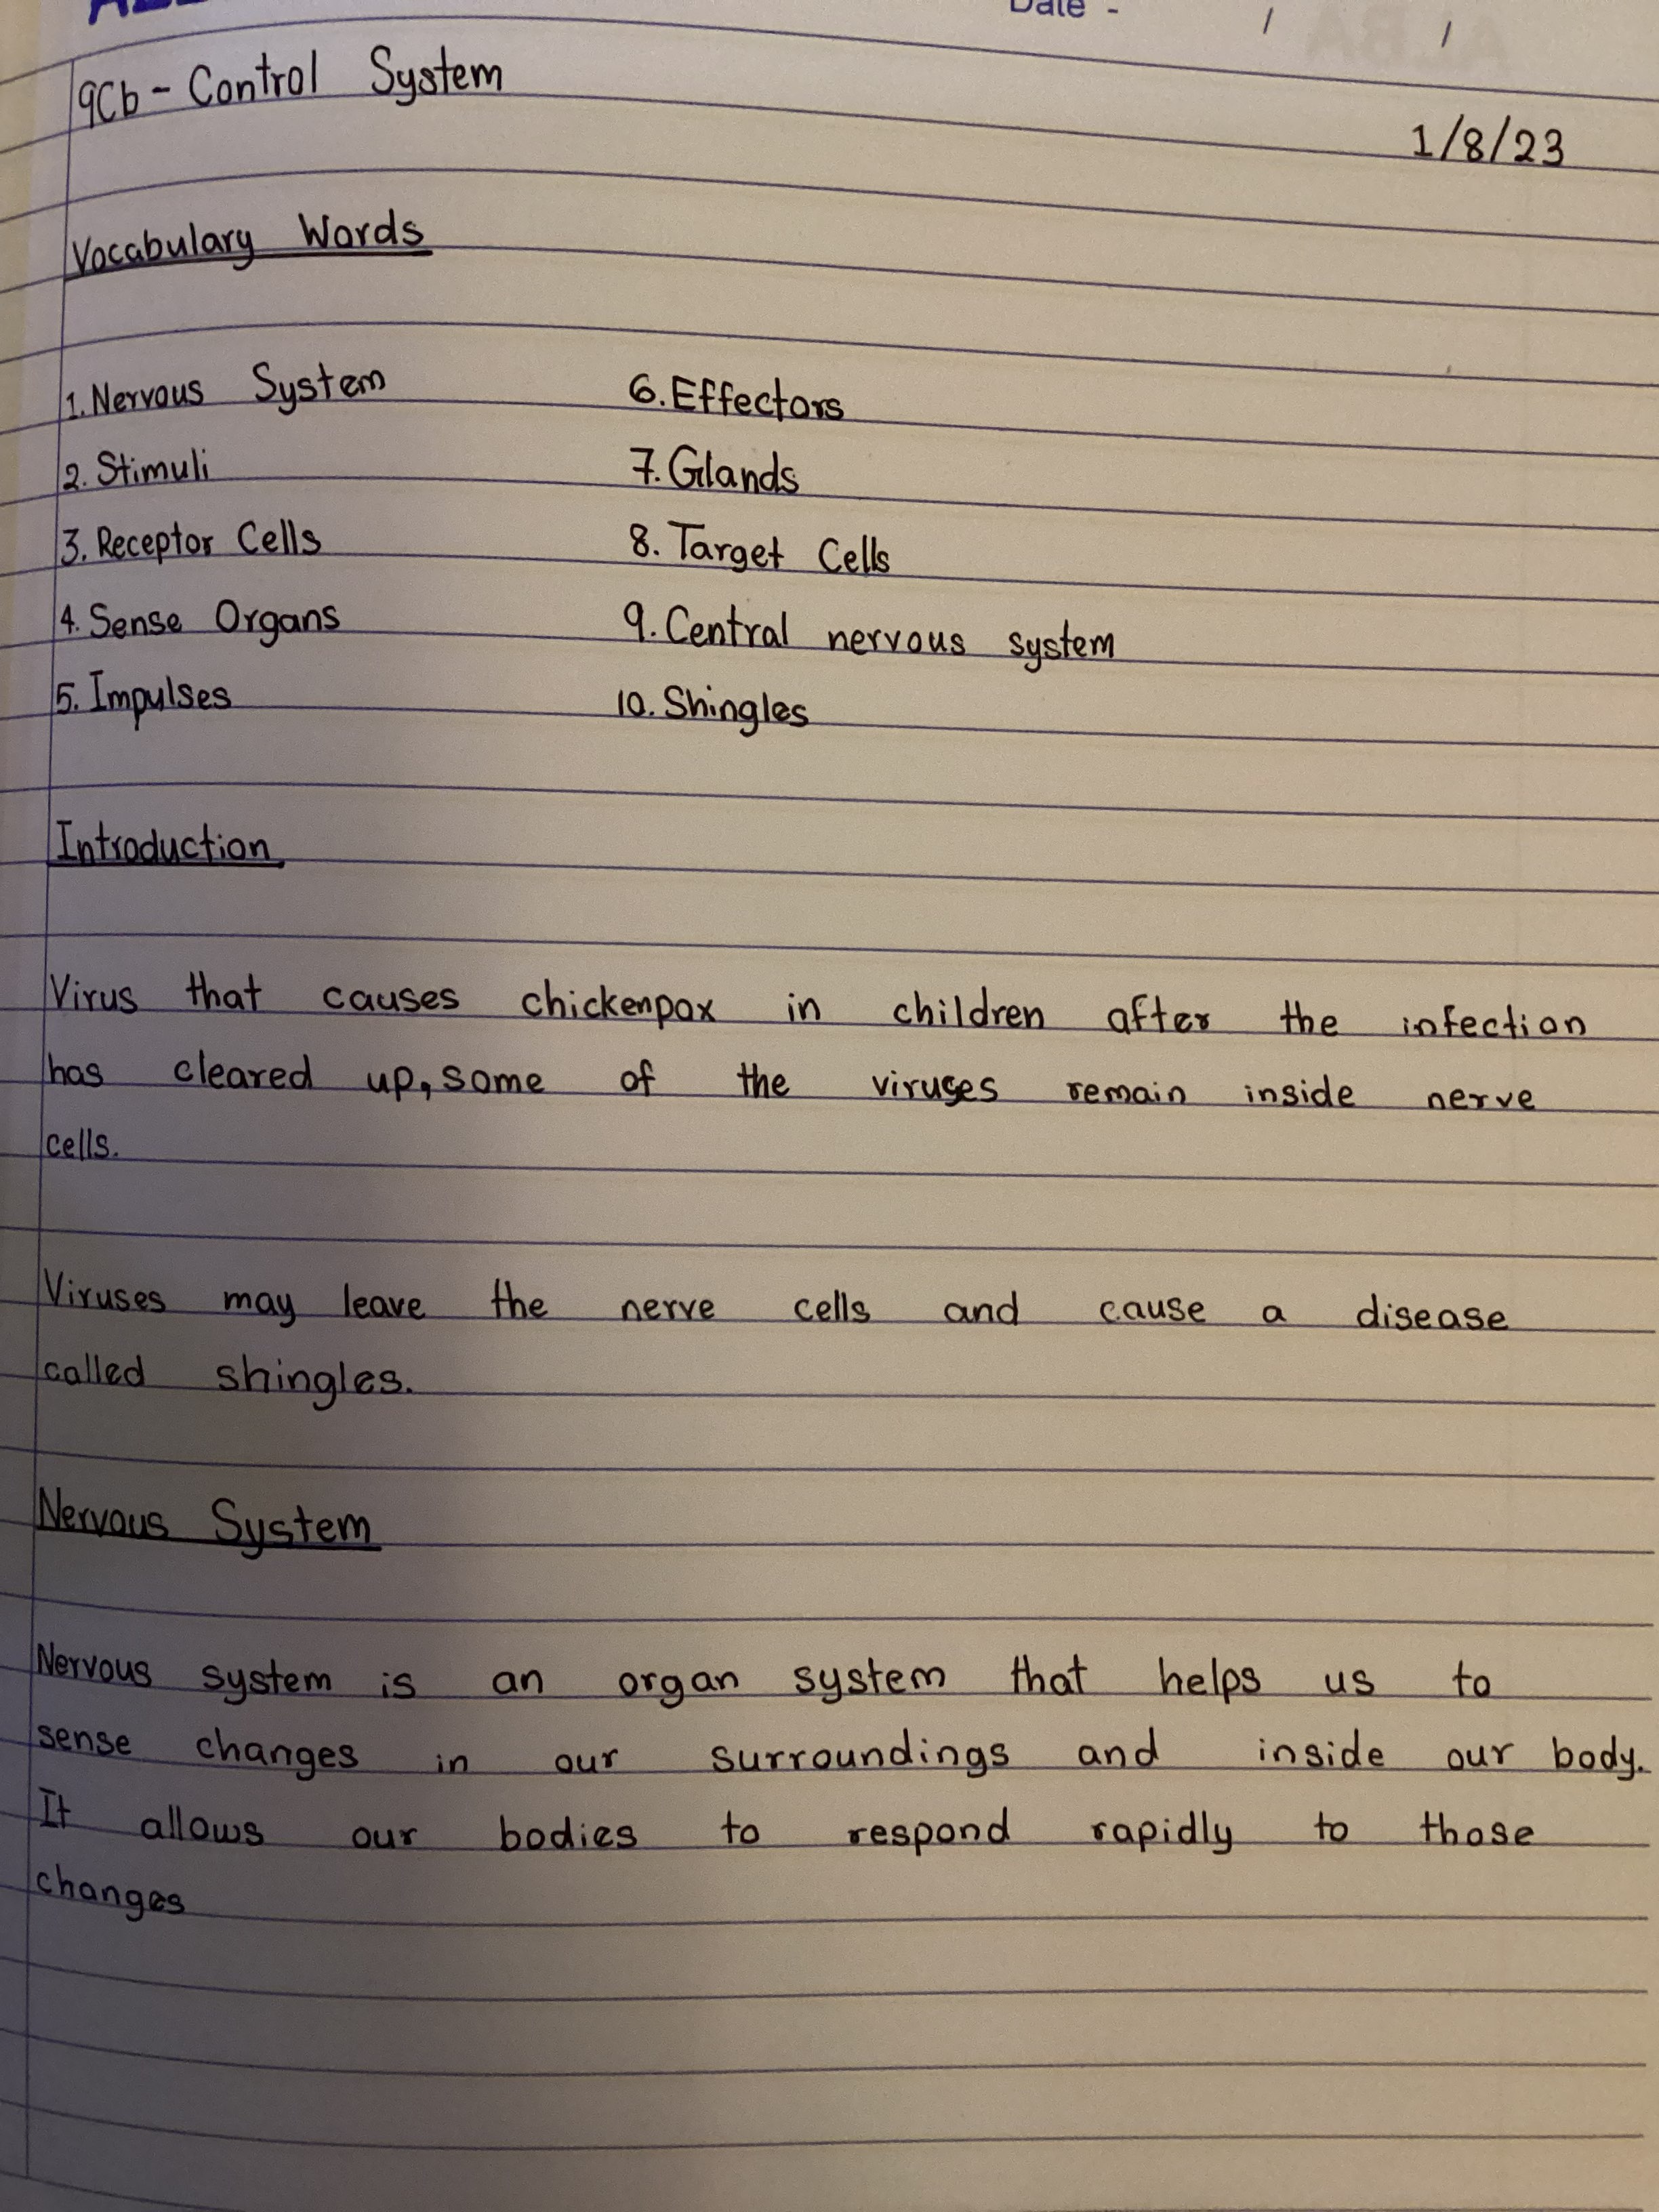 Date - / /
9Cb - Control System
1/8/23
Vocabulary Words
1. Nervous System
2. Stimuli
3. Receptor Cells
4. Sense Organs
5. Impulses
6. Effectors
7. Glands
8. Target Cells
9. Central nervous system
10. Shingles
Introduction
Virus that causes chickenpox in children after the infection
has cleared up, some of the viruses remain inside nerve
cells.
Viruses may leave the nerve cells and cause a disease
called shingles.
Nervous System
Nervous system is an organ system that helps us to
sense changes in our surroundings and inside our body.
It allows our bodies to respond rapidly to those
changes